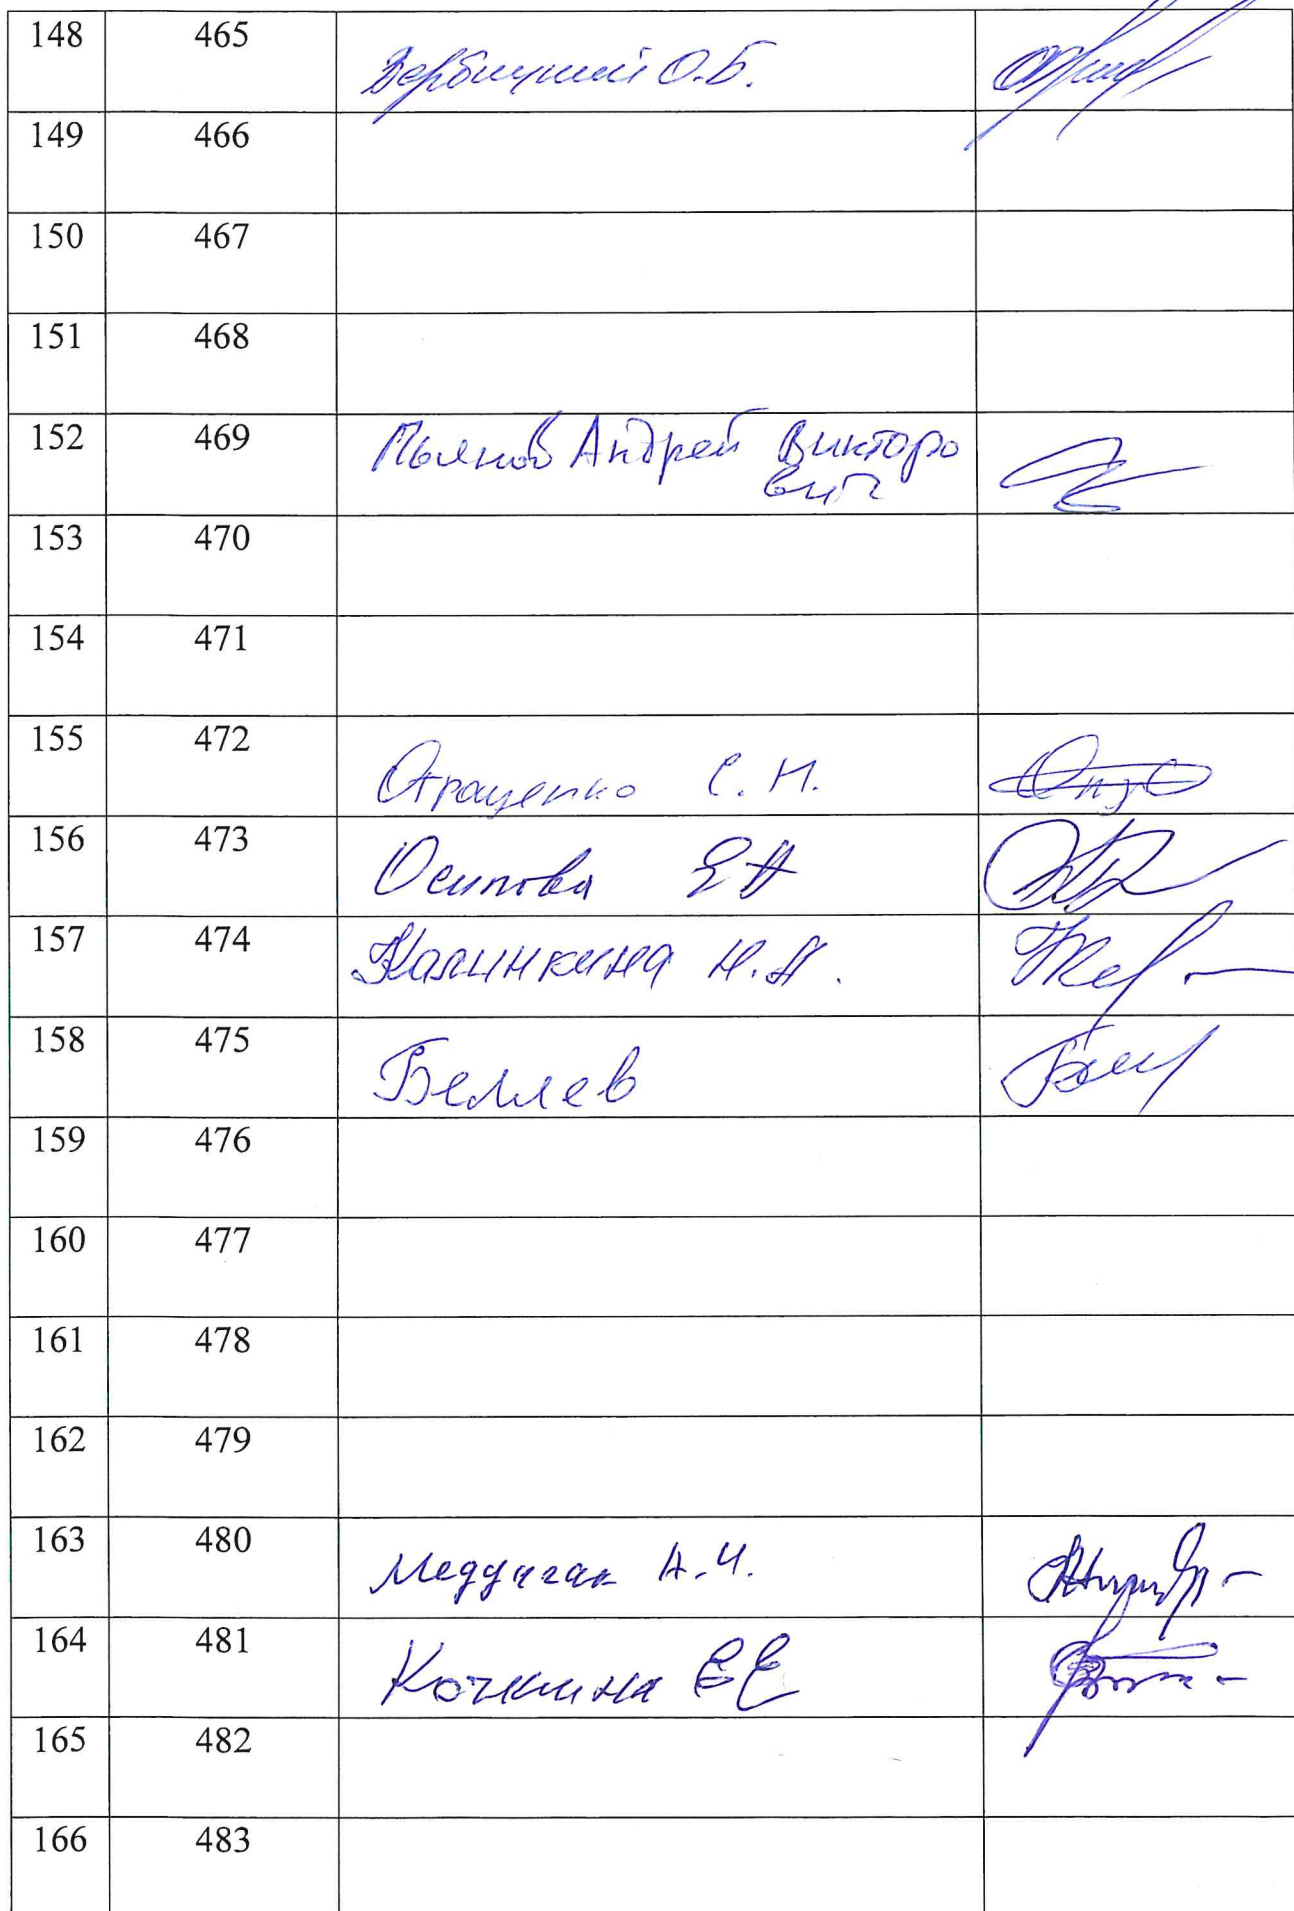 148 465 Вербицкий О.Б.
149 466
150 467
151 468
152 469 Пьянов Андрей Викторо
вич
153 470
154 471
155 472 С.Н.
156 473 Осипова ЕА
157 474 Калинкина Н.А.
158 475 Беляев
159 476
160 477
161 478
162 479
163 480 А.И.
164 481 Кочкина ЕЕ
165 482
166 483